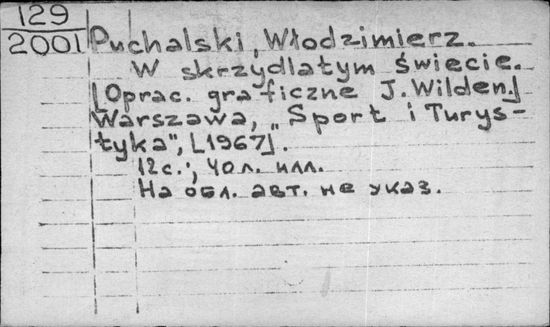 129
2001
Puchalski, Włodzimierz.
W skrzydlatym świecie.
[Oprac. graficzne J. Wilden.]
Warszawa, „Sport i Turys-
tyka", [1967].
12 с.; 40 л. илл.
На обл. авт. не указ.